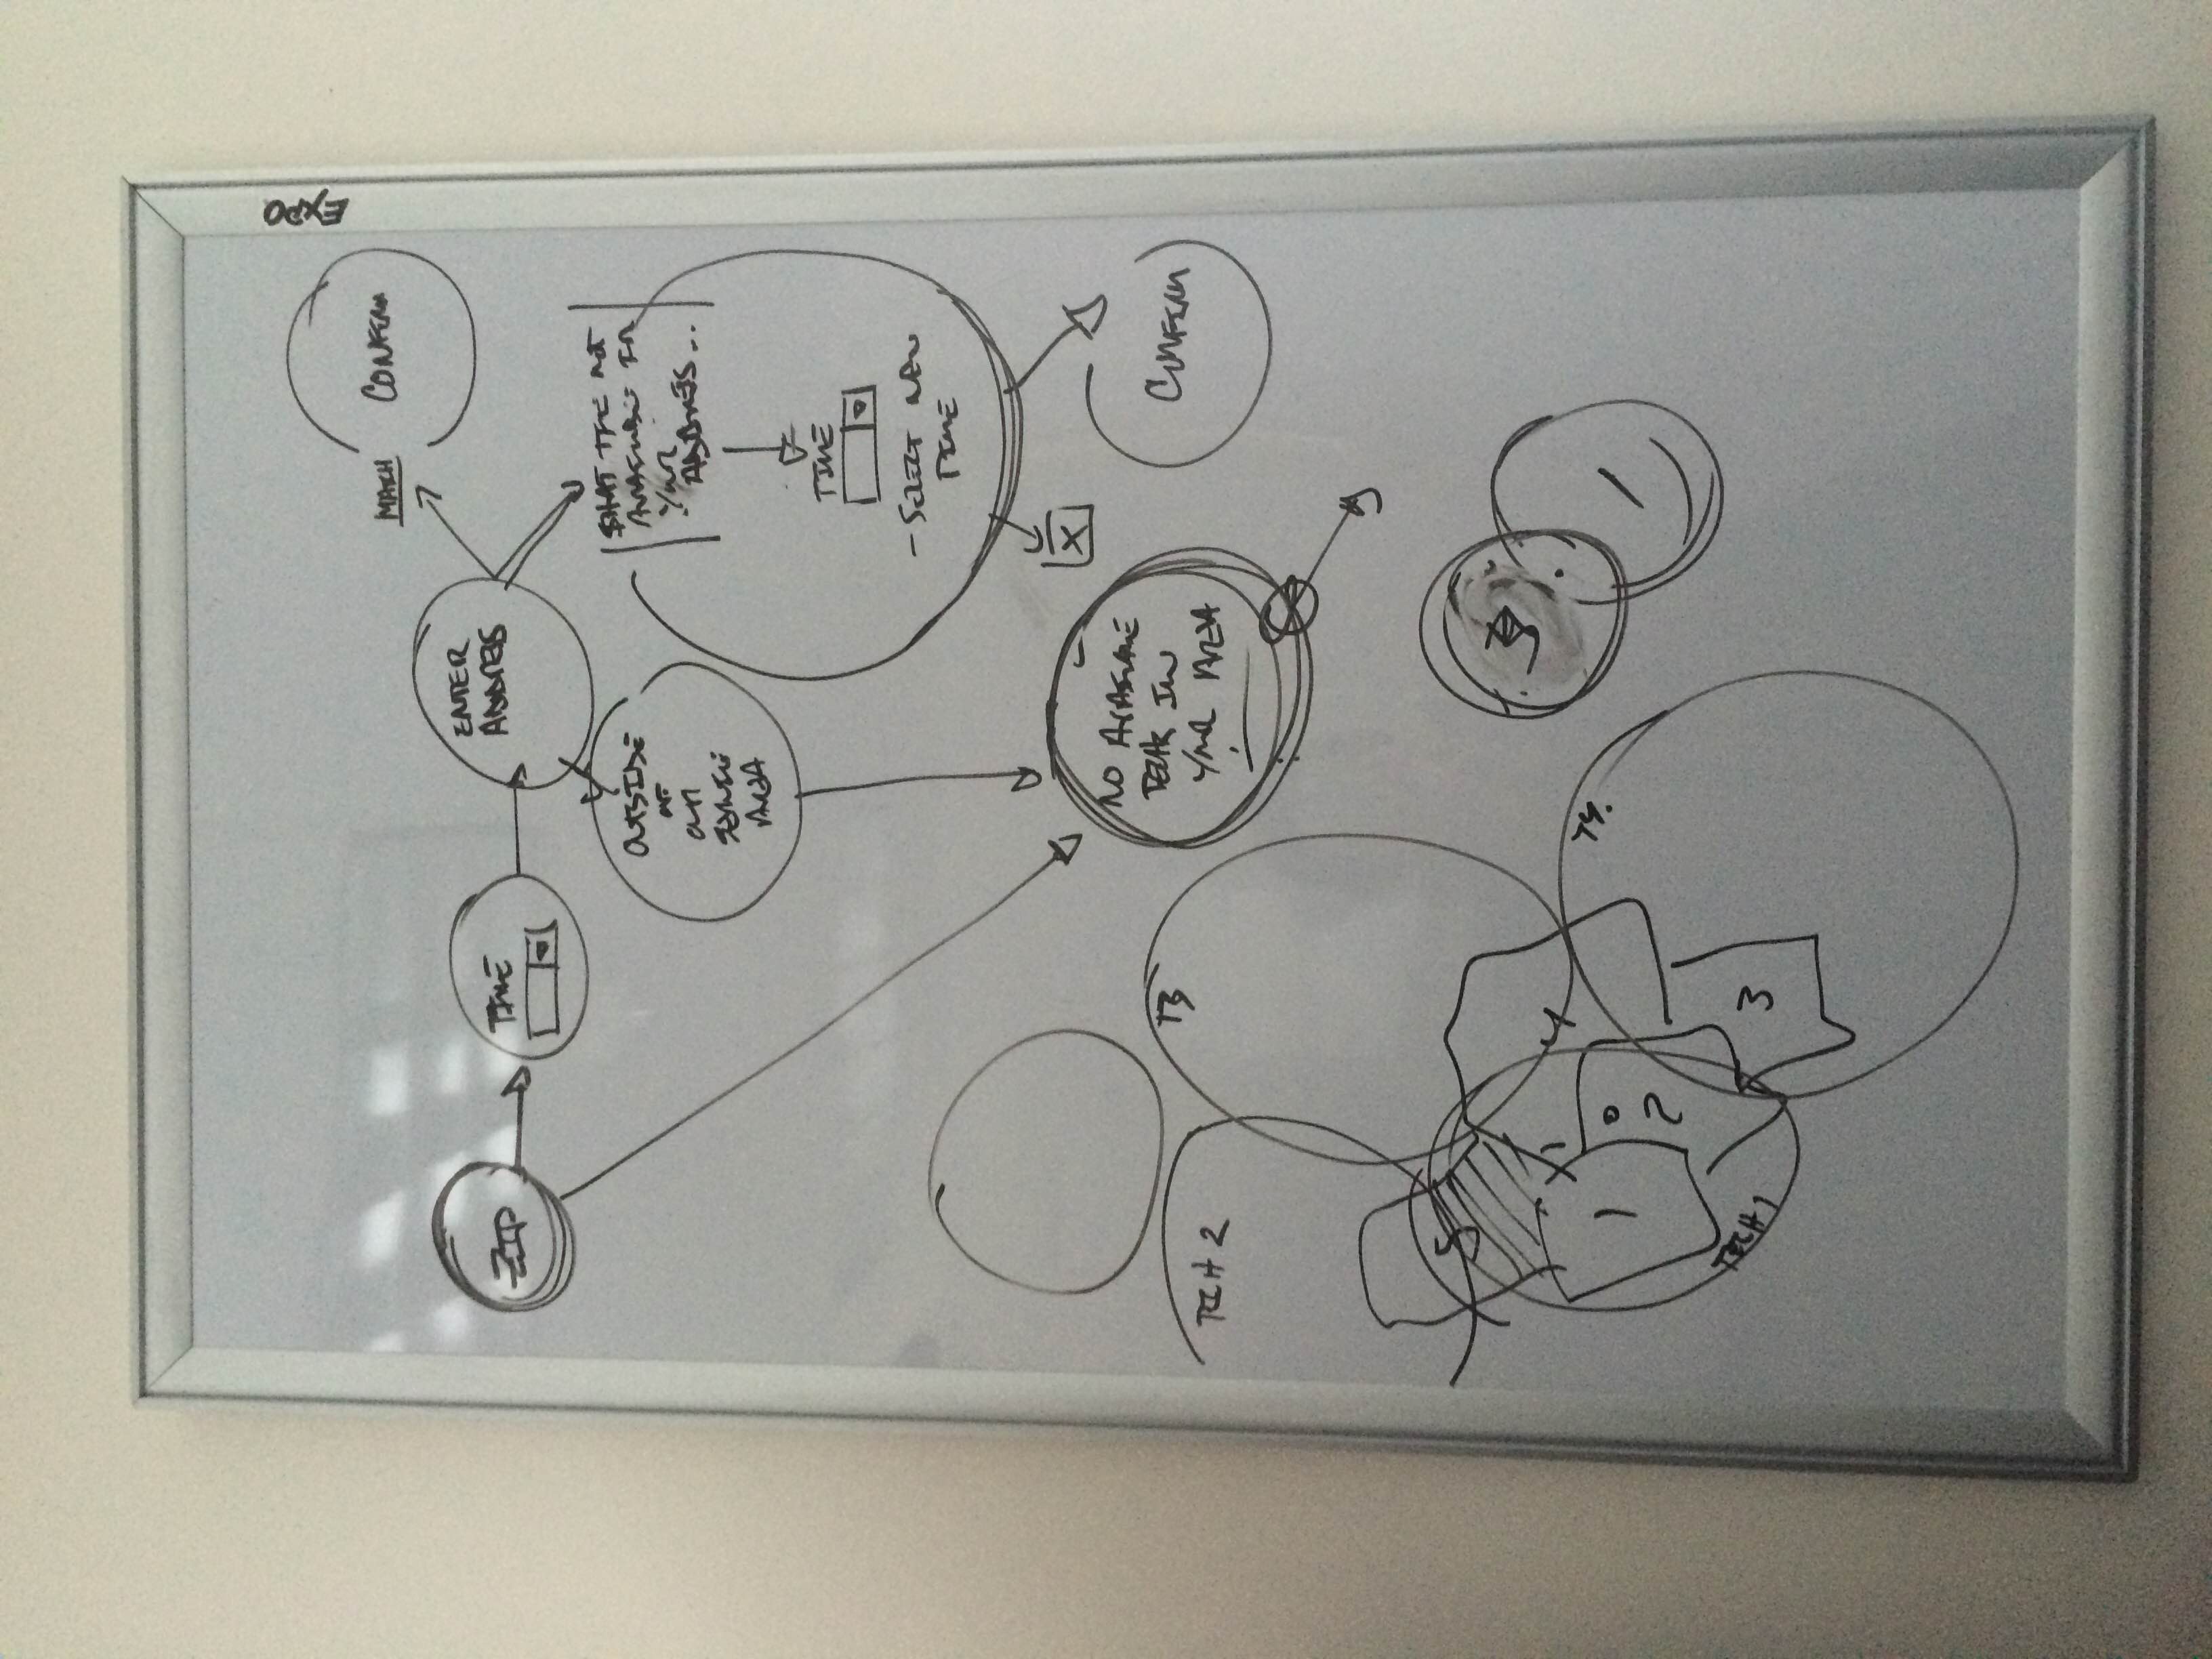 EXPO
MATCH
CONFIRM
ZIP
TIME
ENTER
ADDRESS
OUTSIDE
OF
OUR
SERVICE
AREA
NOT
AVAILABLE FOR
YOUR
ADDRESS...
TIME
- SELECT NEW
TIME
X
NO AVAILABLE
TECHS IN
YOUR AREA
CONFIRM
TECH 2
T3
5
4
1
2
T4.
3
TECH 1
1